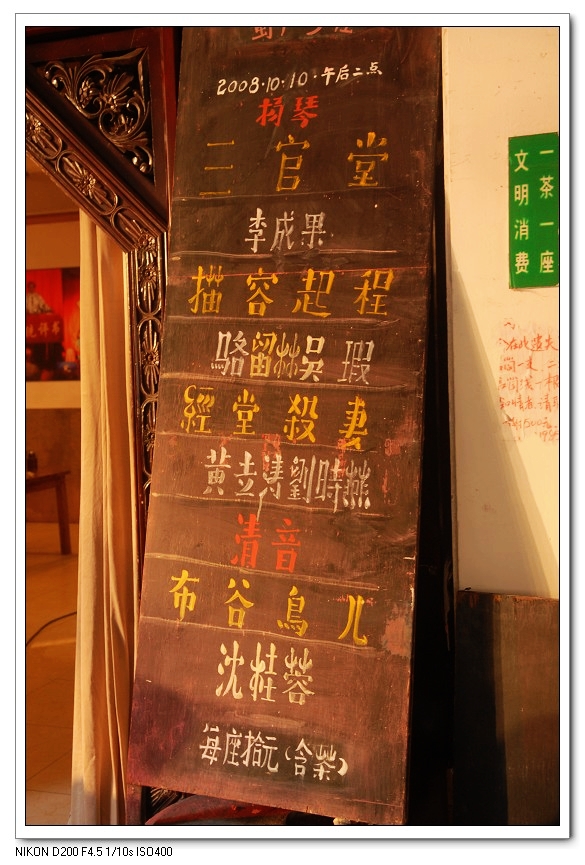 2008·10·10·午后二点
扬琴
三官堂
李成果
描容起程
駱留林吳瑕
經堂殺妻
黄圭涛劉時燕
清音
布谷鳥儿
沈桂蓉
每座拾元(含茶)
一茶一座
文明消费
NIKON D200 F4.5 1/10s ISO400